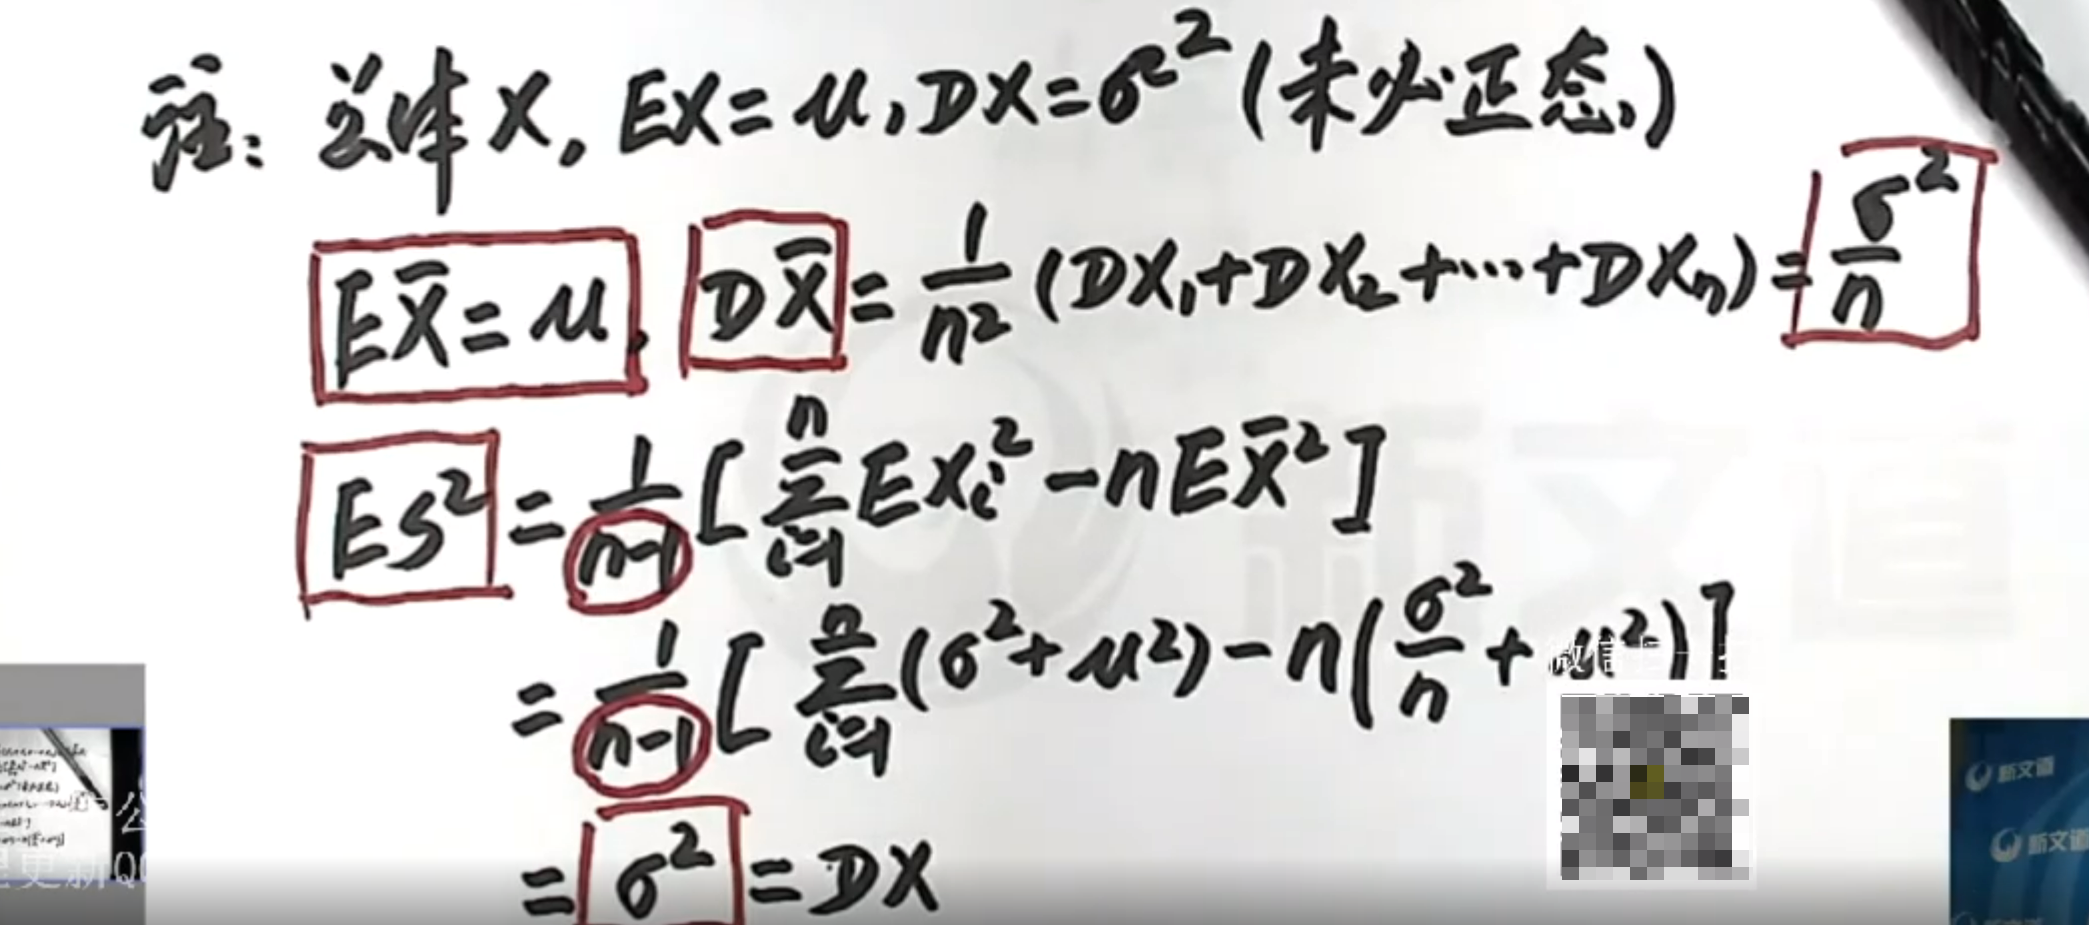 注: 总体X, EX=μ, DX=σ² (未必正态)
EX̄=μ, DX̄ = 1/n² (DX₁+DX₂+⋯+DXₙ) = σ²/n
ES² = 1/(n-1) [ ∑ᵢ₌₁ⁿ EXᵢ² - nEX̄² ]
= 1/(n-1) [ ∑ᵢ₌₁ⁿ (σ²+μ²) - n(σ²/n + μ²) ]
= σ² = DX
微信扫一扫
新文道
新文道
更新QQ